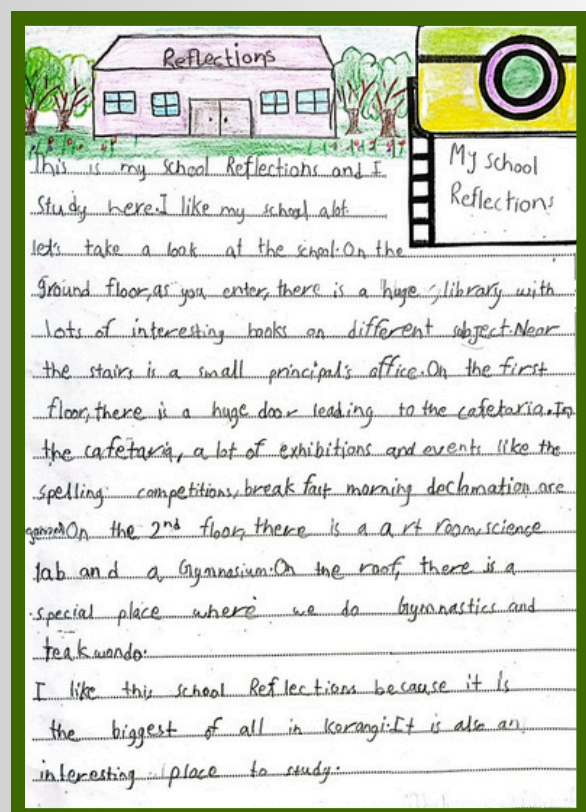 Reflections
My school
Reflections
This is my school Reflections and I
study here.I like my school alot.
let's take a look at the school.On the
ground floor,as you enter, there is a huge library with
lots of interesting books on different subject.Near
the stairs is a small principal's office.On the first
floor, there is a huge door leading to the cafetaria.In
the cafetaria, a lot of exhibitions and events like the
spelling competitions, break fast morning declamation are
On the 2nd floor, there is a art room, science
lab and a Gymnasium.On the roof, there is a
special place where we do Gymnastics and
teakwondo.
I like this school Reflections because it is
the biggest of all in Korangi.It is also an
interesting place to study.